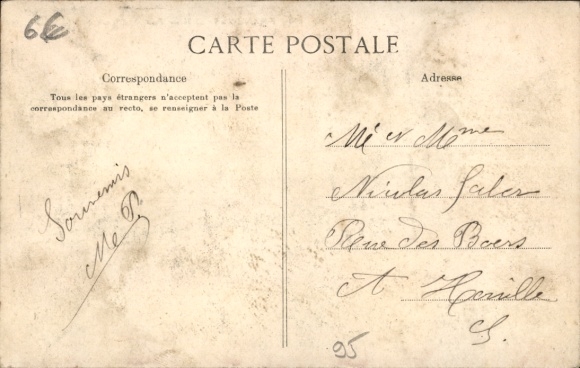 6€
CARTE POSTALE
Correspondance
Tous les pays étrangers n'acceptent pas la
correspondance au recto, se renseigner à la Poste
Souvenirs
Adresse
Mr et Mme
Nicolas
des Boers
A
95